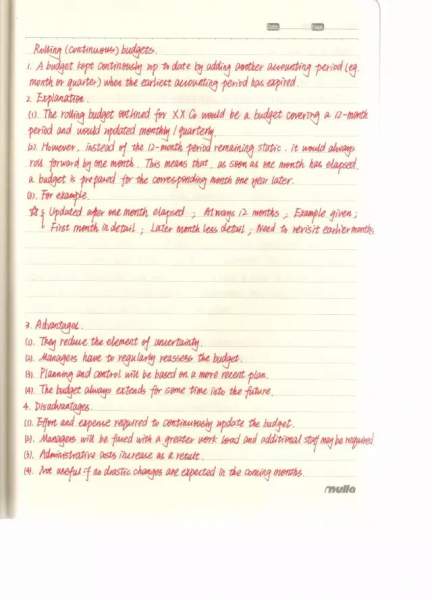 Date
Page
Rolling (continuous) budgets.
1. A budget kept continuously up to date by adding another accounting period (eg.
month or quarter) when the earliest accounting period has expired.
2. Explanation.
(1). The rolling budget outlined for XX Co would be a budget covering a 12-month
period and would updated monthly / quarterly.
(2). However, instead of the 12-month period remaining static, it would always
roll forward by one month. This means that, as soon as one month has elapsed,
a budget is prepared for the corresponding month one year later.
(3). For example.
Updated after one month elapsed ; Always 12 months ; Example given ;
First month in detail ; Later month less detail ; Need to revisit earlier months
3. Advantages.
(1). They reduce the element of uncertainty.
(2). Managers have to regularly reassess the budget.
(3). Planning and control will be based on a more recent plan.
(4). The budget always extends for some time into the future.
4. Disadvantages.
(1). Effort and expense required to continuously update the budget.
(2). Managers will be faced with a greater work load and additional staff may be required
(3). Administrative costs increase as a result.
(4). Not useful if no drastic changes are expected in the coming months.